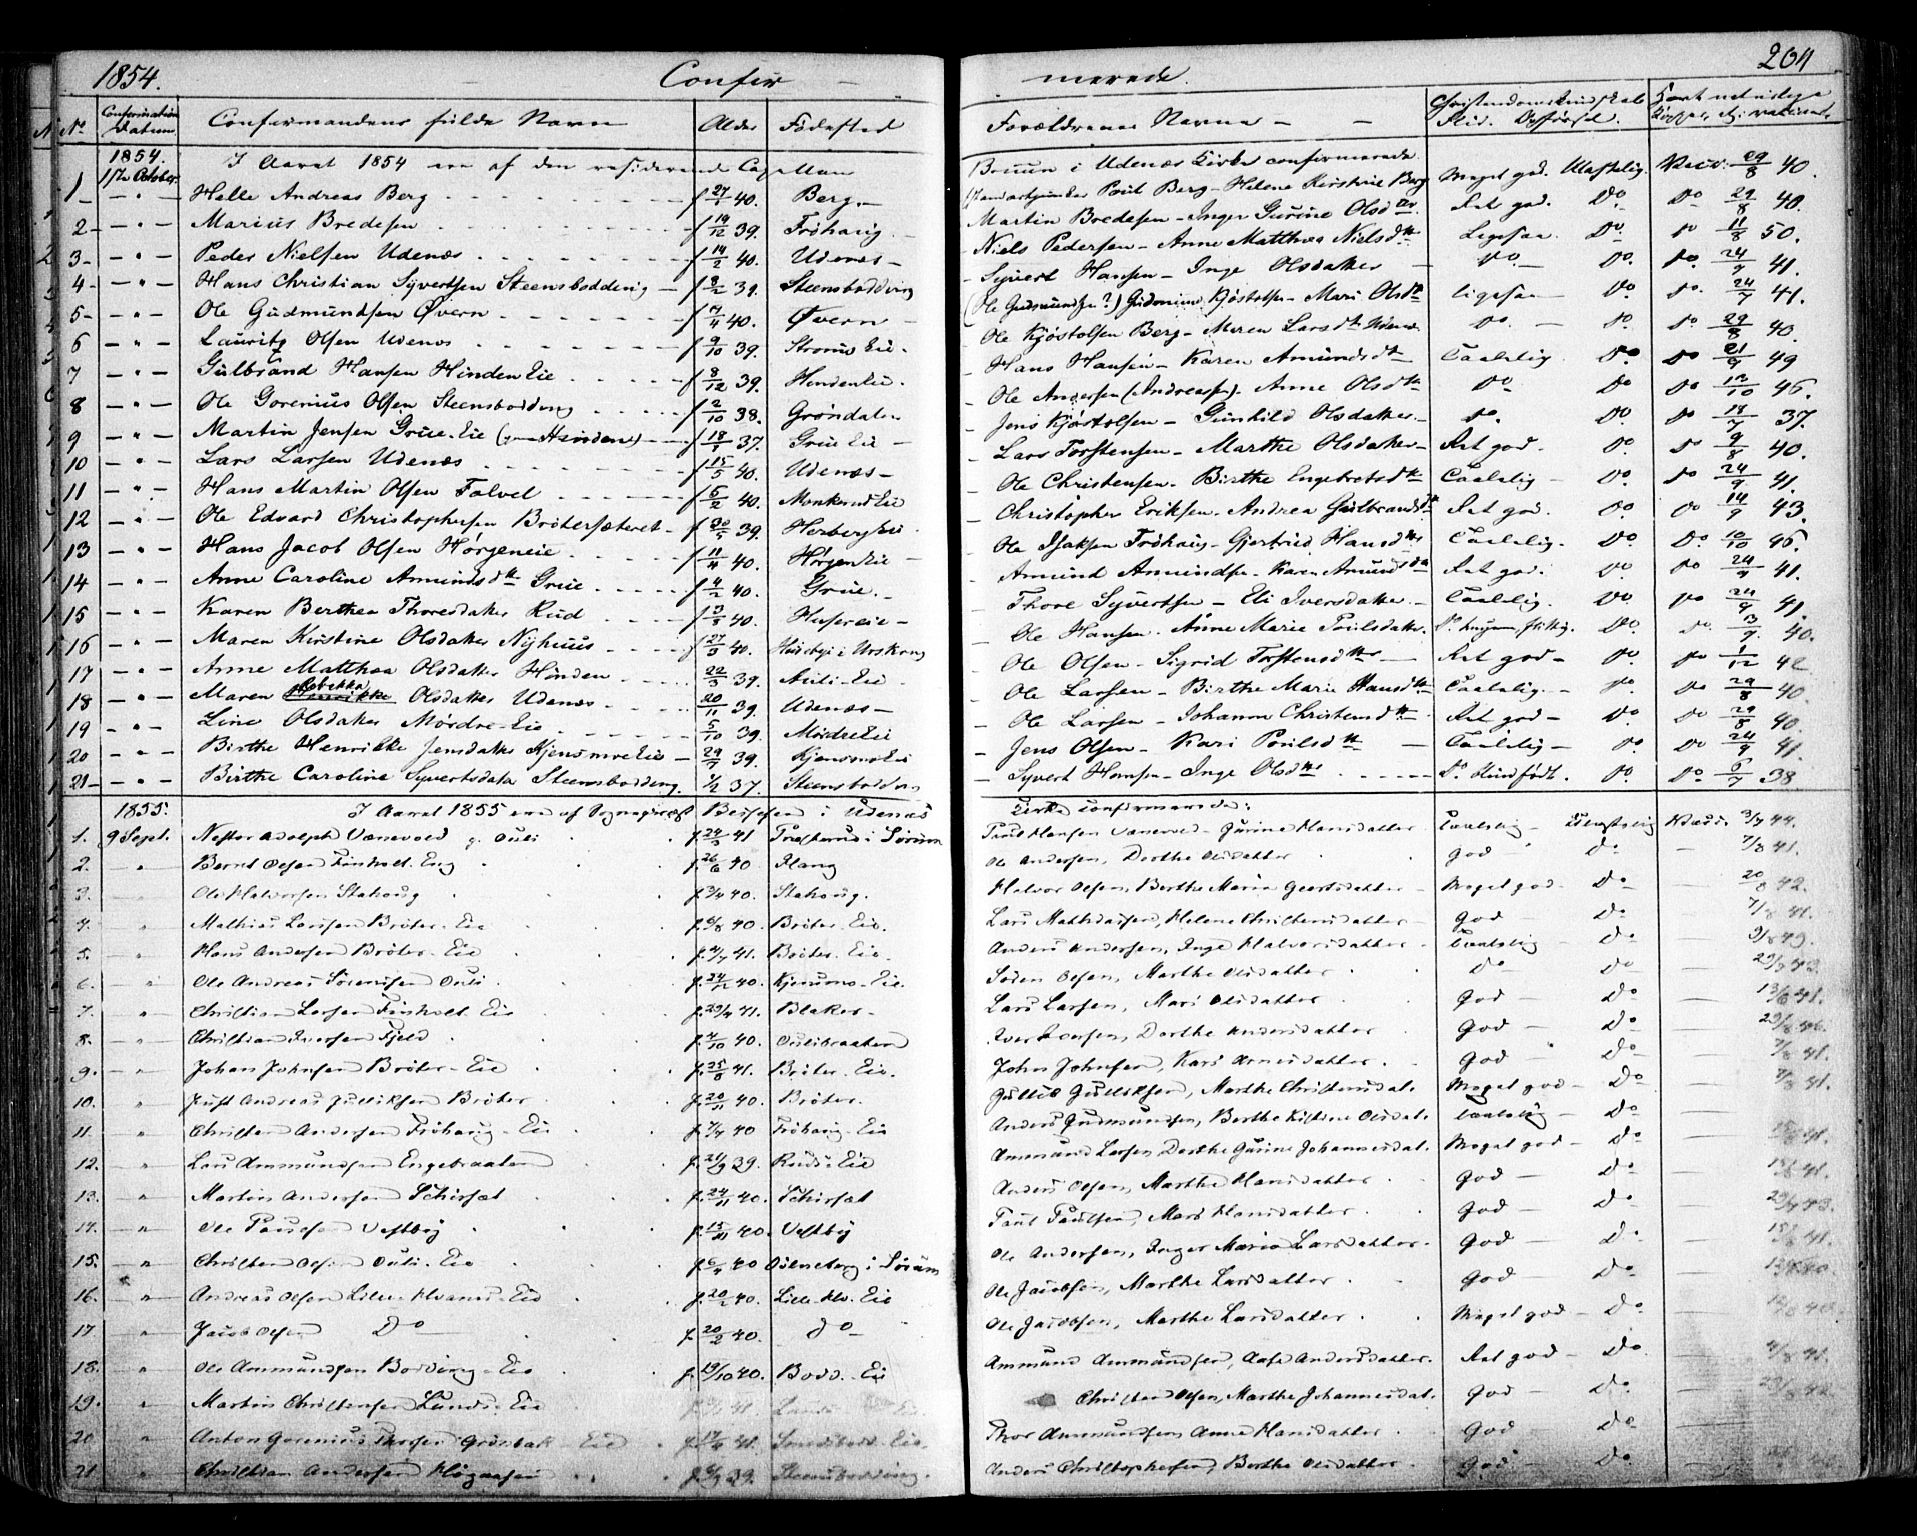 1854. Confir merede. 204
No Confirmation Datum Confirmandens fulde Navn Alder Fødested Forældrenes Navne Christendomskundskab Flid. Opførsel.
1854. I Aaret 1854 ere af den residerende Capellan Bruun i Udenæs Kirke confirmerede
1ste October
1 Helle Andreas Berg f 27/1 40. Berg. Poul Berg - Helene Kirstine Berg Meget god. Ulastelig. Vacc. 29/8 40.
2 Marius Bredesen f 19/12 39. Frøhaug Martin Bredesen - Inger Gurine Olsdtr Ret god. Do Do 29/8 40.
3 Peder Nielsen Udenæs f 14/2 40. Udenæs Niels Pedersen - Anne Matthea Nielsdtr Ligesaa Do Do 11/8 50.
4 Hans Christian Syvertsen Steensbodding f 8/2 39. Steensbodding Syvert Hansen - Inge Olsdatter Do Do Do 24/9 41.
5 Ole Gudmundsen Øvern f 7/4 40. Øvern (Ole Gudmundsen?) Kjøstolsen - Mari Olsdtr Ligesaa Do Do 24/7 41.
6 Lauritz Olsen Udenæs f 9/10 39. Stroms Eie. Ole Kjøstolsen Berg - Maren Larsdtr Do Do Do 29/8 40.
7 Gulbrand Hansen Hinden Eie f 8/12 39. Henden Eie. Hans Hansen - Karen Amundsdtr Taalelig Do Do 21/9 49
8 Ole Gorenius Olsen Steensbodding f 2/10 38. Grøndalen Ole Andersen (Andreasen). Anne Olsdtr Do Do Do 12/10 46.
9 Martin Jensen Grue-Eie f 18/9 37. Grue Eie Jens Kjøstolsen - Gunhild Olsdatter Do. Do Do 18/7 37.
10 Lars Larsen Udenæs f 15/5 40. Udenæs Lars Torstensen - Marthe Olsdatter Ret god. Do Do 9/8 40.
11 Hans Martin Olsen Falvel f 6/2 40. Monkerud Eie Ole Christensen - Birthe Engebretsdtr Taalelig Do Do 24/9 41.
12 Ole Edvard Christophersen Brøtersæteret f 20/5 39. Herbergs Eie Christopher Eriksen. Andrea Gulbrandsdtr Ret god. Do Do 14/9 43.
13 Hans Jacob Olsen Hørgeneie f 11/4 40. Hørgen Eie Ole Isaksen Frøhaug - Gjertrud Hansdtr Taalelig. Do Do. 10/10 46.
14 Anne Caroline Amundsdtr Grue f 4/2 40. Grue. Amund Amundsen - Karen Amundsdtr Ret god. Do Do 24/9 41.
15 Karen Berthea Thoresdatter Rud f 3/3 40. Huseseie Thore Syvertsen - Eli Iversdatter Taalelig. Do Do 24/9 41.
16 Maren Kirstine Olsdatter Nyhuus f 27/5 40. i Urskoug Ole Hansen. Anne Marie Poulsdatter. Do. Do. 13/7 40.
17 Anne Matthea Olsdatter Hinden 22/3 39. Auli-Eie Ole Olsen - Sigrid Torstensdtr Ret god Do Do 1/12 42
18 Maren Rebekka Olsdatter Udenæs 20/11 39. Udenæs Ole Larsen - Birthe Marie Hansdtr Taalelig. Do Do 29/8 40.
19 Line Olsdatter Mørdre-Eie 5/10 39. Mørdre Eie Ole Larsen - Johanne Christensdtr Ret god Do Do 29/8 40.
20 Birthe Henrikke Jensdatter Kjensmoe Eie 29/7 39. Kjensmo Eie Jens Olsen - Kari Poulsdtr Taalelig Do Do 24/9 41.
21 Birthe Caroline Syvertsdatter Steensbodding. 1/2 37. Steensbodding Syvert Hansen - Inge Olsdtr Do. Do Do 6/7 38
1855. I Aaret 1855 ere af Sognepræst i Udenæs Kirke confirmerede:
1. 9 Sept. Adolph Vænevold f. 24/3 41 i Sørum Poul Hansen Vænevold - Gurine Hansdatter Taalelig Ulastelig Vacc. 3/7 44.
2. Bernt Olsen Finholt. Eng f. 26/6 40 Ole Andersen, Dorthe Olsdatter god Do 7/8 41.
3. Ole Halvorsen Stahoug f. 3/4 40. Stahoug. Halvor Olsen, Berthe Maria Meget god Do 20/8 42.
4. Mathias Larsen Brøter-Eie f. 6/8 40 Brøter-Eie. Lars Mathiasen, Helene Christensdatter God Do 7/8 41.
5. Hans Andersen Brøter-Eie f. 41. Brøter-Eie. Anders Andersen, Inge Halvorsdatter Taalelig Do 49.
6. Ole Andreas Sørensen Ouli f. 24/12 40. Kjensmo-Eie. Søren Olsen, Marthe Olsdatter Do Do
7. Christian Larsen Finholt Eie f. 29/4 41. Blaker Lars Larsen, Mari Olsdatter God Do 13/8 41.
8. Christian Iversen Fjeld f. 4/10 40. Oulibraaten Iver Iversen, Dorthe Andersdatter God Do
9. Johan Johnsen Brøter-Eie f. 25/8 41. Brøter-Eie. John Johnsen, Kari Arnesdatter God Do 7/8 41.
10. Just Andreas Gulliksen Brøter f. 20/11 40. Brøter. Gullik Gulliksen, Marthe Christensdat. Meget god Do 7/8 41.
11. Christian Andersen Frøhaug-Eie f. 7/7 40 Frøhaug-Eie Anders Gudmundsen, Berthe Kistine Olsdat. Taalelig Do
12. Lars Ammundsen Engebraaten f. 21/9 39. Ruds-Eie Ammund Larsen Dorthe Gurine Johannesdat. Meget god Do 41.
13. Martin Andersen Schirsæt f. 24/11 40. Schirsæt Anders Olsen, Marthe Hansdatter God Do 41.
14. Ole Paulsen Vestby f. 15/11 40. Vestby Paul Paulsen, Mari Hansdatter God Do
15. Christian Olsen Ouli-Eie f. 6/7 40 i Sørum Ole Andersen, Inger Maria Larsdatter God Do 41.
16. Andreas Olsen Lille-Hvams-Eie f. 20/2 40. Lille-Hv. Eie Ole Jacobsen, Marthe Larsdatter God Do
17. Jacob Olsen Do f. 20/2 40. Do Ole Jacobsen, Marthe Larsdatter Meget god Do
18. Ole Ammundsen Bodding-Eie f. 19/10 40. Bodd.-Eie Ammund Ammundsen, Aase Andersdatter. Ret god Do
19. Martin Christensen Lunds-Eie Christen Olsen, Marthe Johannesdat. God Do
20 Anton Gorenius Thorsen Eie Thor Ammundsen Anne Hansdatter God Do
21 Christian Andersen 39. Steensbodding. Anders Christophersen, Berthe Olsdatter God Do